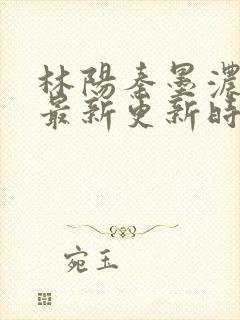 林陽秦墨濃
最新更新時
宛玉